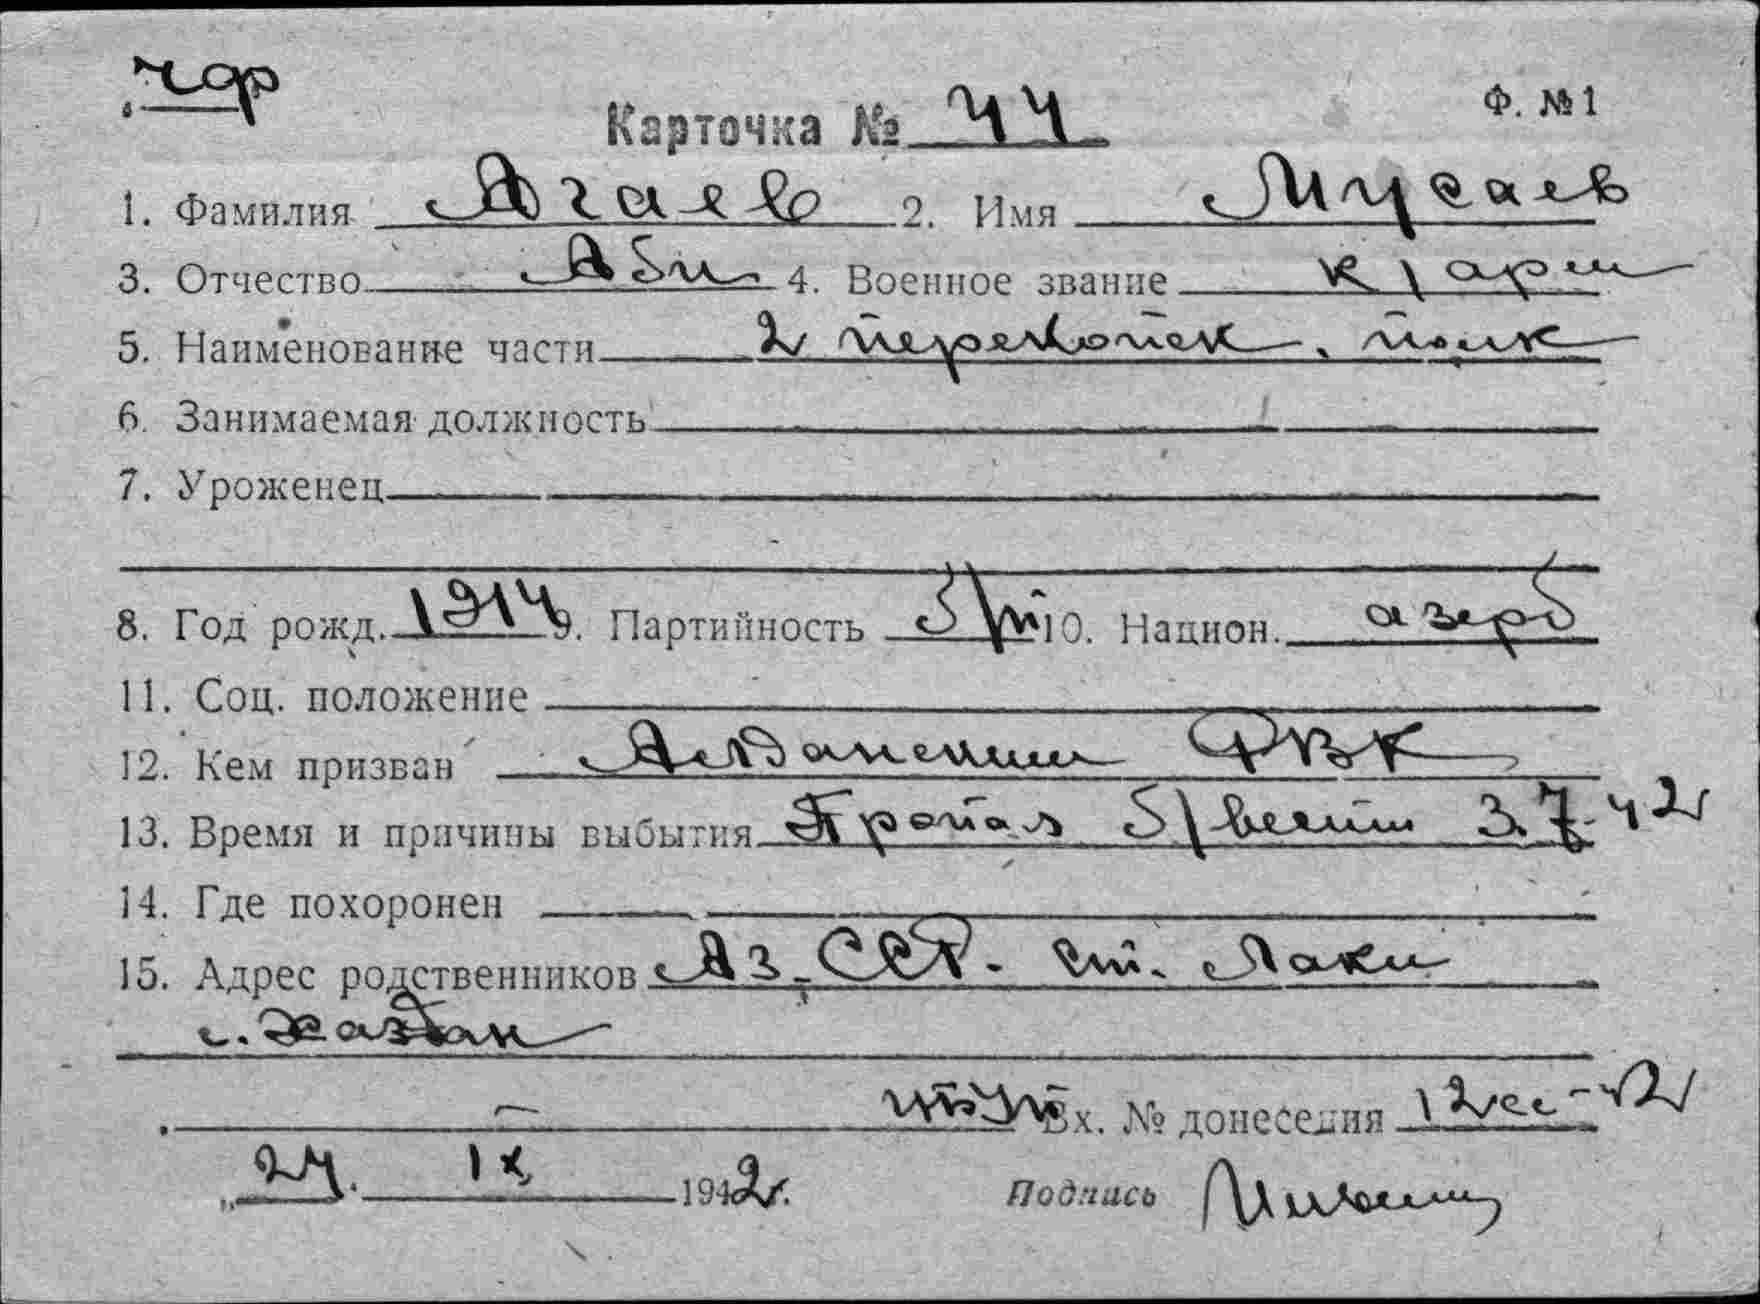 чф
Карточка № 44 Ф. №1
1. Фамилия Агаев 2. Имя Мусаев
3. Отчество Аби 4. Военное звание к/арм
5. Наименование части 2 перекопск. полк
6. Занимаемая должность
7. Уроженец
8. Год рожд. 1914 9. Партийность б/п 10. Национ. азерб
11. Соц. положение
12. Кем призван РВК
13. Время и причины выбытия Пропал б/вести 3.7.42
14. Где похоронен
15. Адрес родственников Аз. ССР. ст. Лаки
с.
Вх. № донесения 12сс-42
„24. IX 1942г.
Подпись